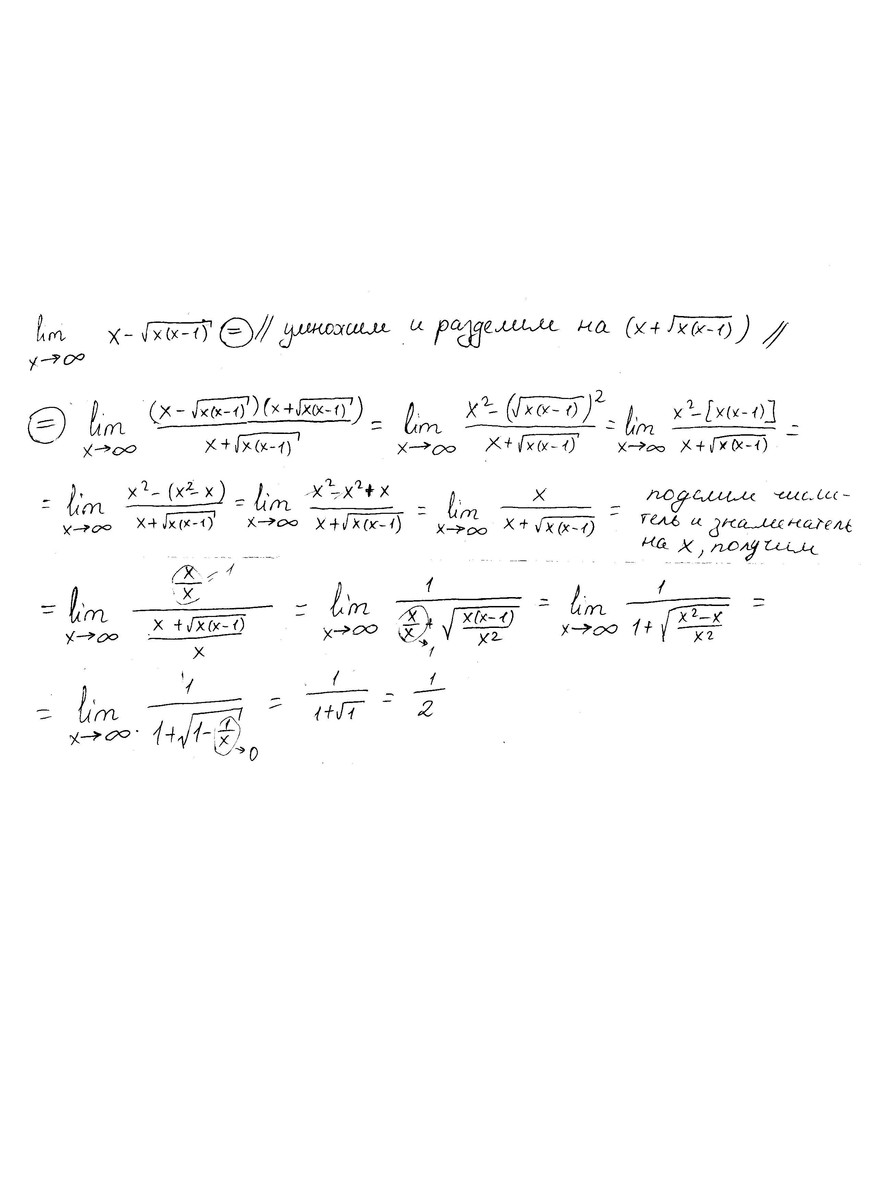 lim x→∞ x-√(x(x-1)) (=) // умножим и разделим на (x+√(x(x-1))) //
(=) lim x→∞ (x-√(x(x-1)))(x+√(x(x-1)))/(x+√(x(x-1))) = lim x→∞ (x²-(√(x(x-1)))²)/(x+√(x(x-1))) = lim x→∞ (x²-[x(x-1)])/(x+√(x(x-1))) =
= lim x→∞ (x²-(x²-x))/(x+√(x(x-1))) = lim x→∞ (x²-x²+x)/(x+√(x(x-1))) = lim x→∞ x/(x+√(x(x-1))) = поделим числи-
тель и знаменатель
на x, получим
= lim x→∞ (x/x = 1)/((x+√(x(x-1)))/x) = lim x→∞ 1/(x/x →1 + √(x(x-1)/x²)) = lim x→∞ 1/(1+√((x²-x)/x²)) =
= lim x→∞ 1/(1+√(1-1/x →0)) = 1/(1+√1) = 1/2